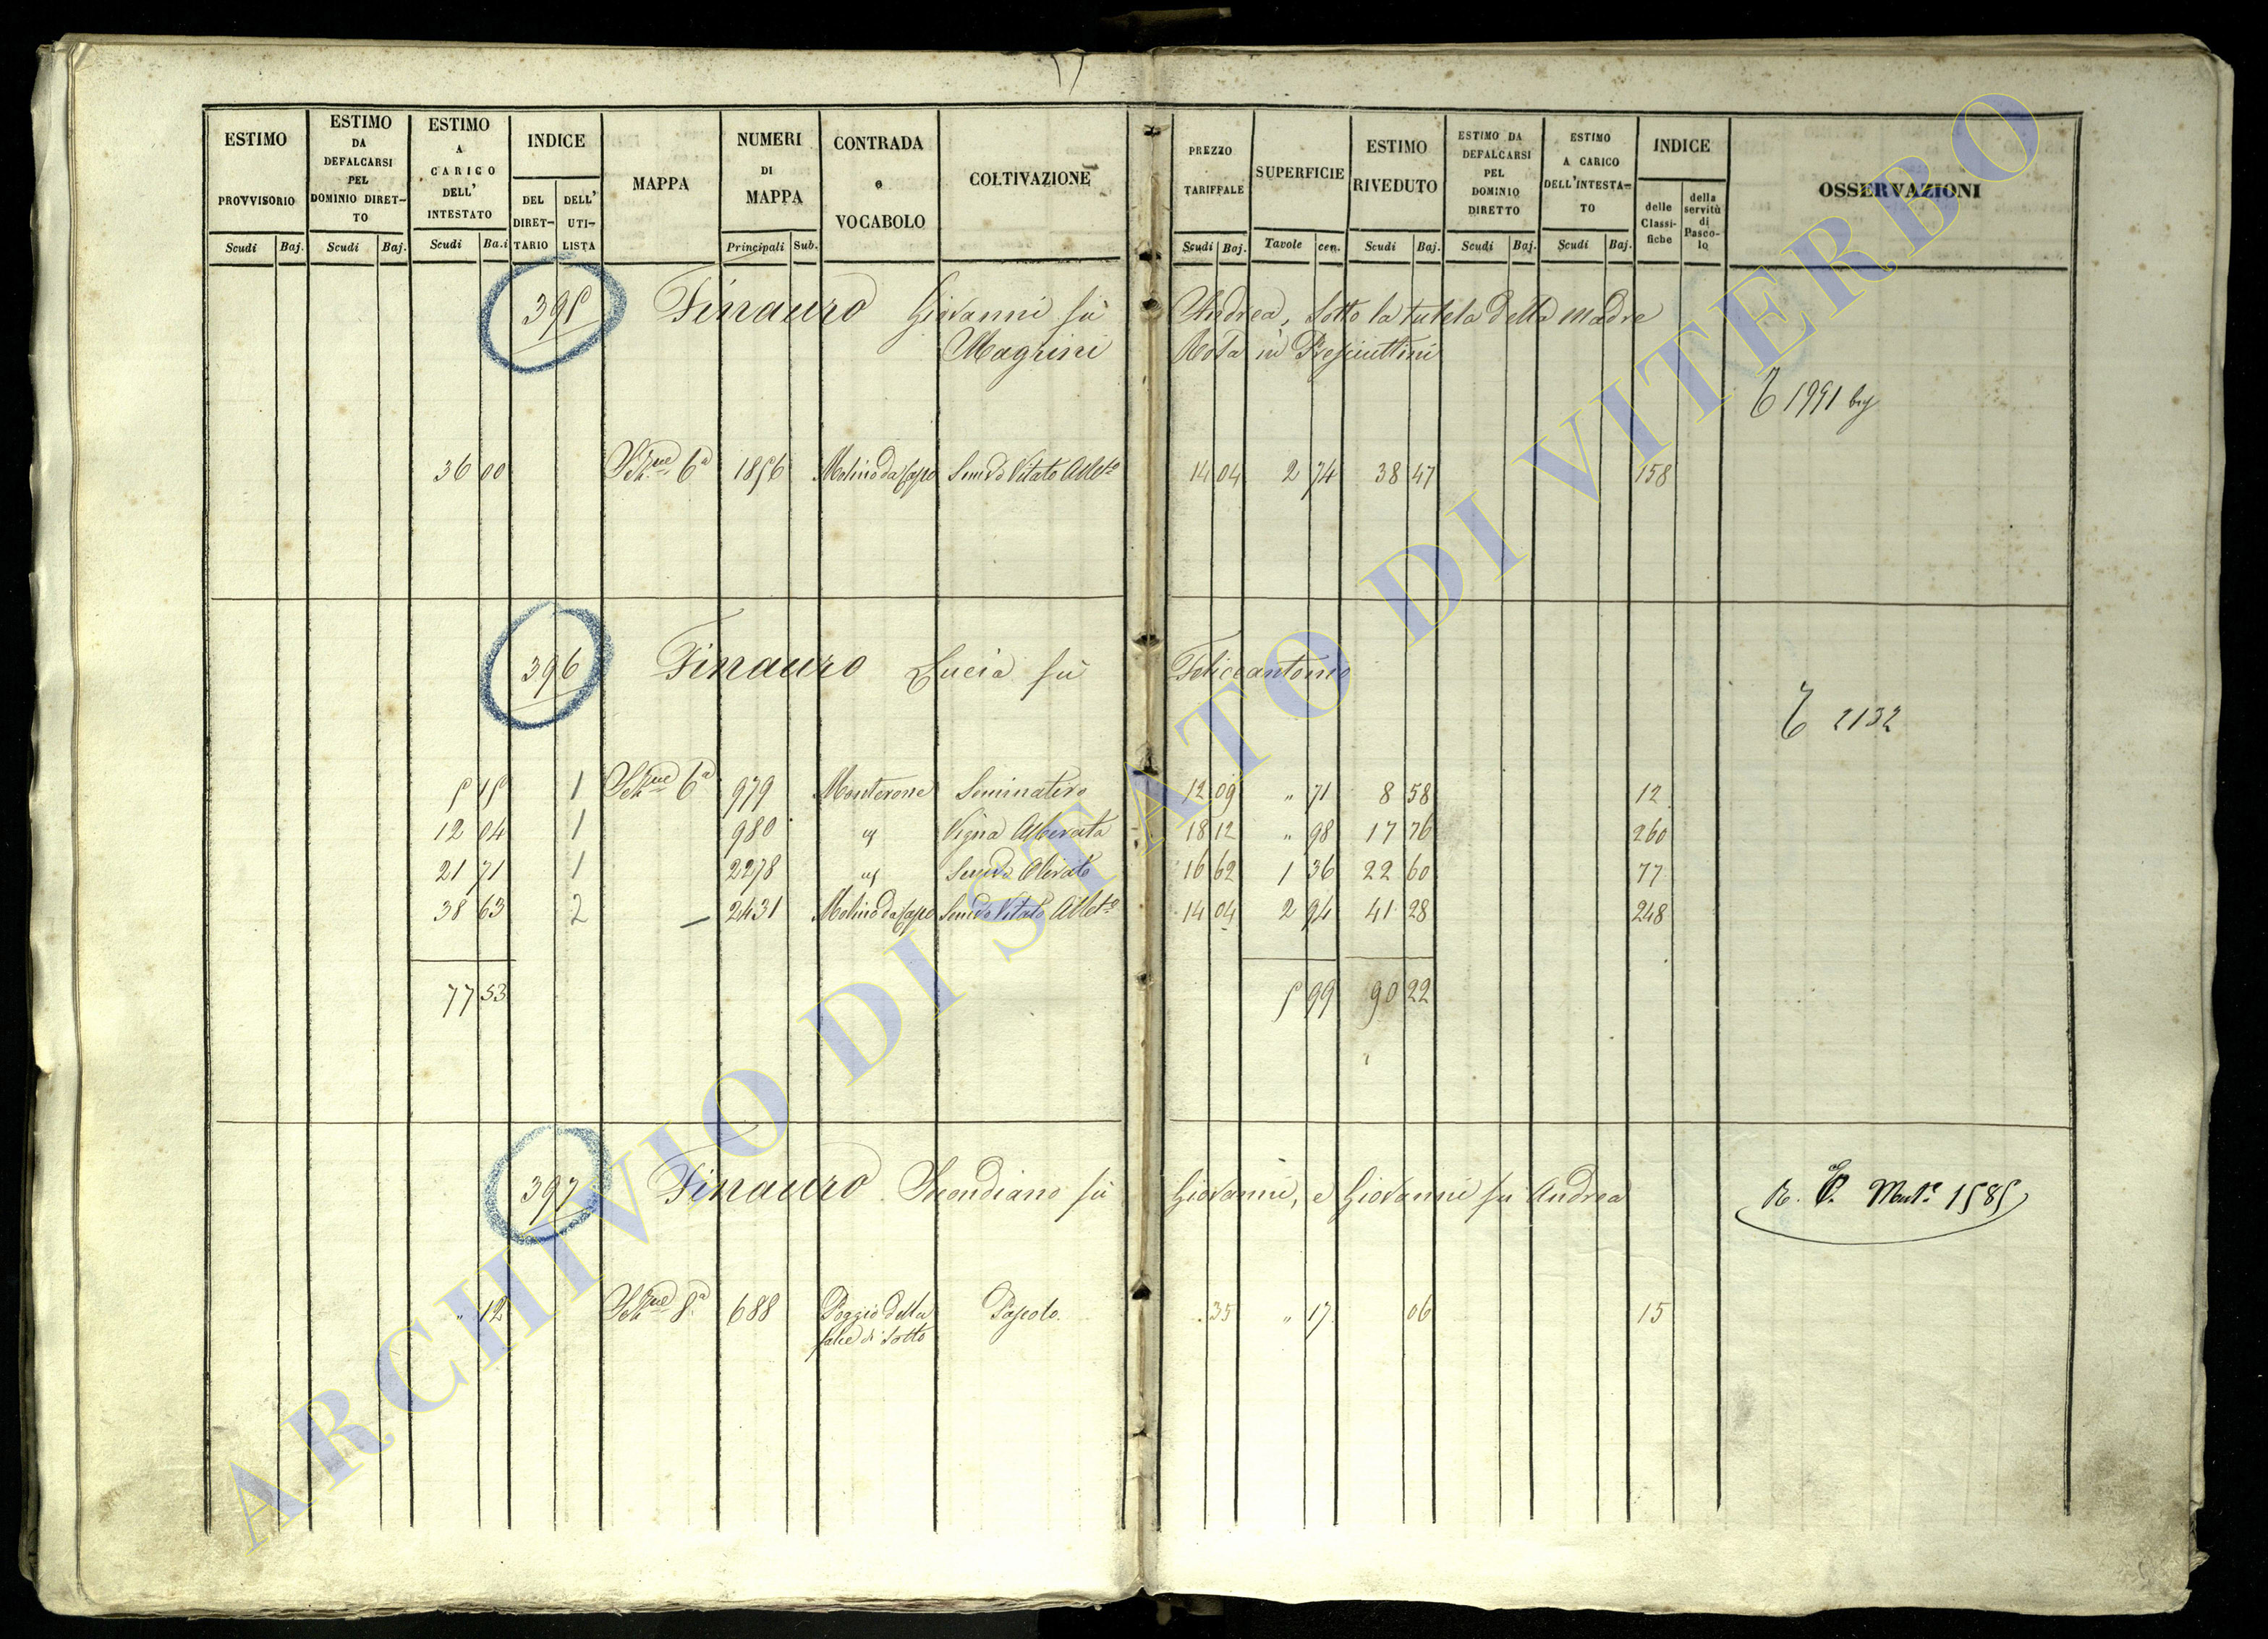 ESTIMO PROVVISORIO Scudi Baj.
ESTIMO DA DEFALCARSI PEL DOMINIO DIRET-TO Scudi Baj.
ESTIMO A CARICO DELL' INTESTATO Scudi Ba.i
INDICE DEL DIRET-TARIO DELL' UTI-LISTA
MAPPA
NUMERI DI MAPPA Principali Sub.
CONTRADA o VOCABOLO
COLTIVAZIONE
PREZZO TARIFFALE Scudi Baj.
SUPERFICIE Tavole cen.
ESTIMO RIVEDUTO Scudi Baj.
ESTIMO DA DEFALCARSI PEL DOMINIO DIRETTO Scudi Baj.
ESTIMO A CARICO DELL'INTESTA-TO Scudi Baj.
INDICE delle Classi-fiche della servitù di Pasco-lo
OSSERVAZIONI
395 Finauro Giovanni fù Andrea, sotto la tutela della madre
Magrini Rosa in Presciuttini
1991
36 00 6a 1856 Molino da Capo Semvo Vitato Alb.to 14 04 2 74 38 47 158
396 Finauro Lucia fù Feliceantonio
2132
5 15 1 6a 979 Monterone Seminativo 12 09 " 71 8 58 12
12 04 1 980 Vigna Alberata 18 12 " 98 17 76 260
21 71 1 2278 Semvo Olivato 16 62 1 36 22 60 77
38 63 2 — 2431 Molino da Capo Semvo Vitato Alb.to 14 04 2 94 41 28 248
77 53 5 99 90 22
397 Finauro Secondiano fù Giovanni, e Giovanni fu Andrea
1585
" 12 8a 688 Poggio della Pascolo. 35 " 17 06 15
falce di sotto
ARCHIVIO DI STATO DI VITERBO